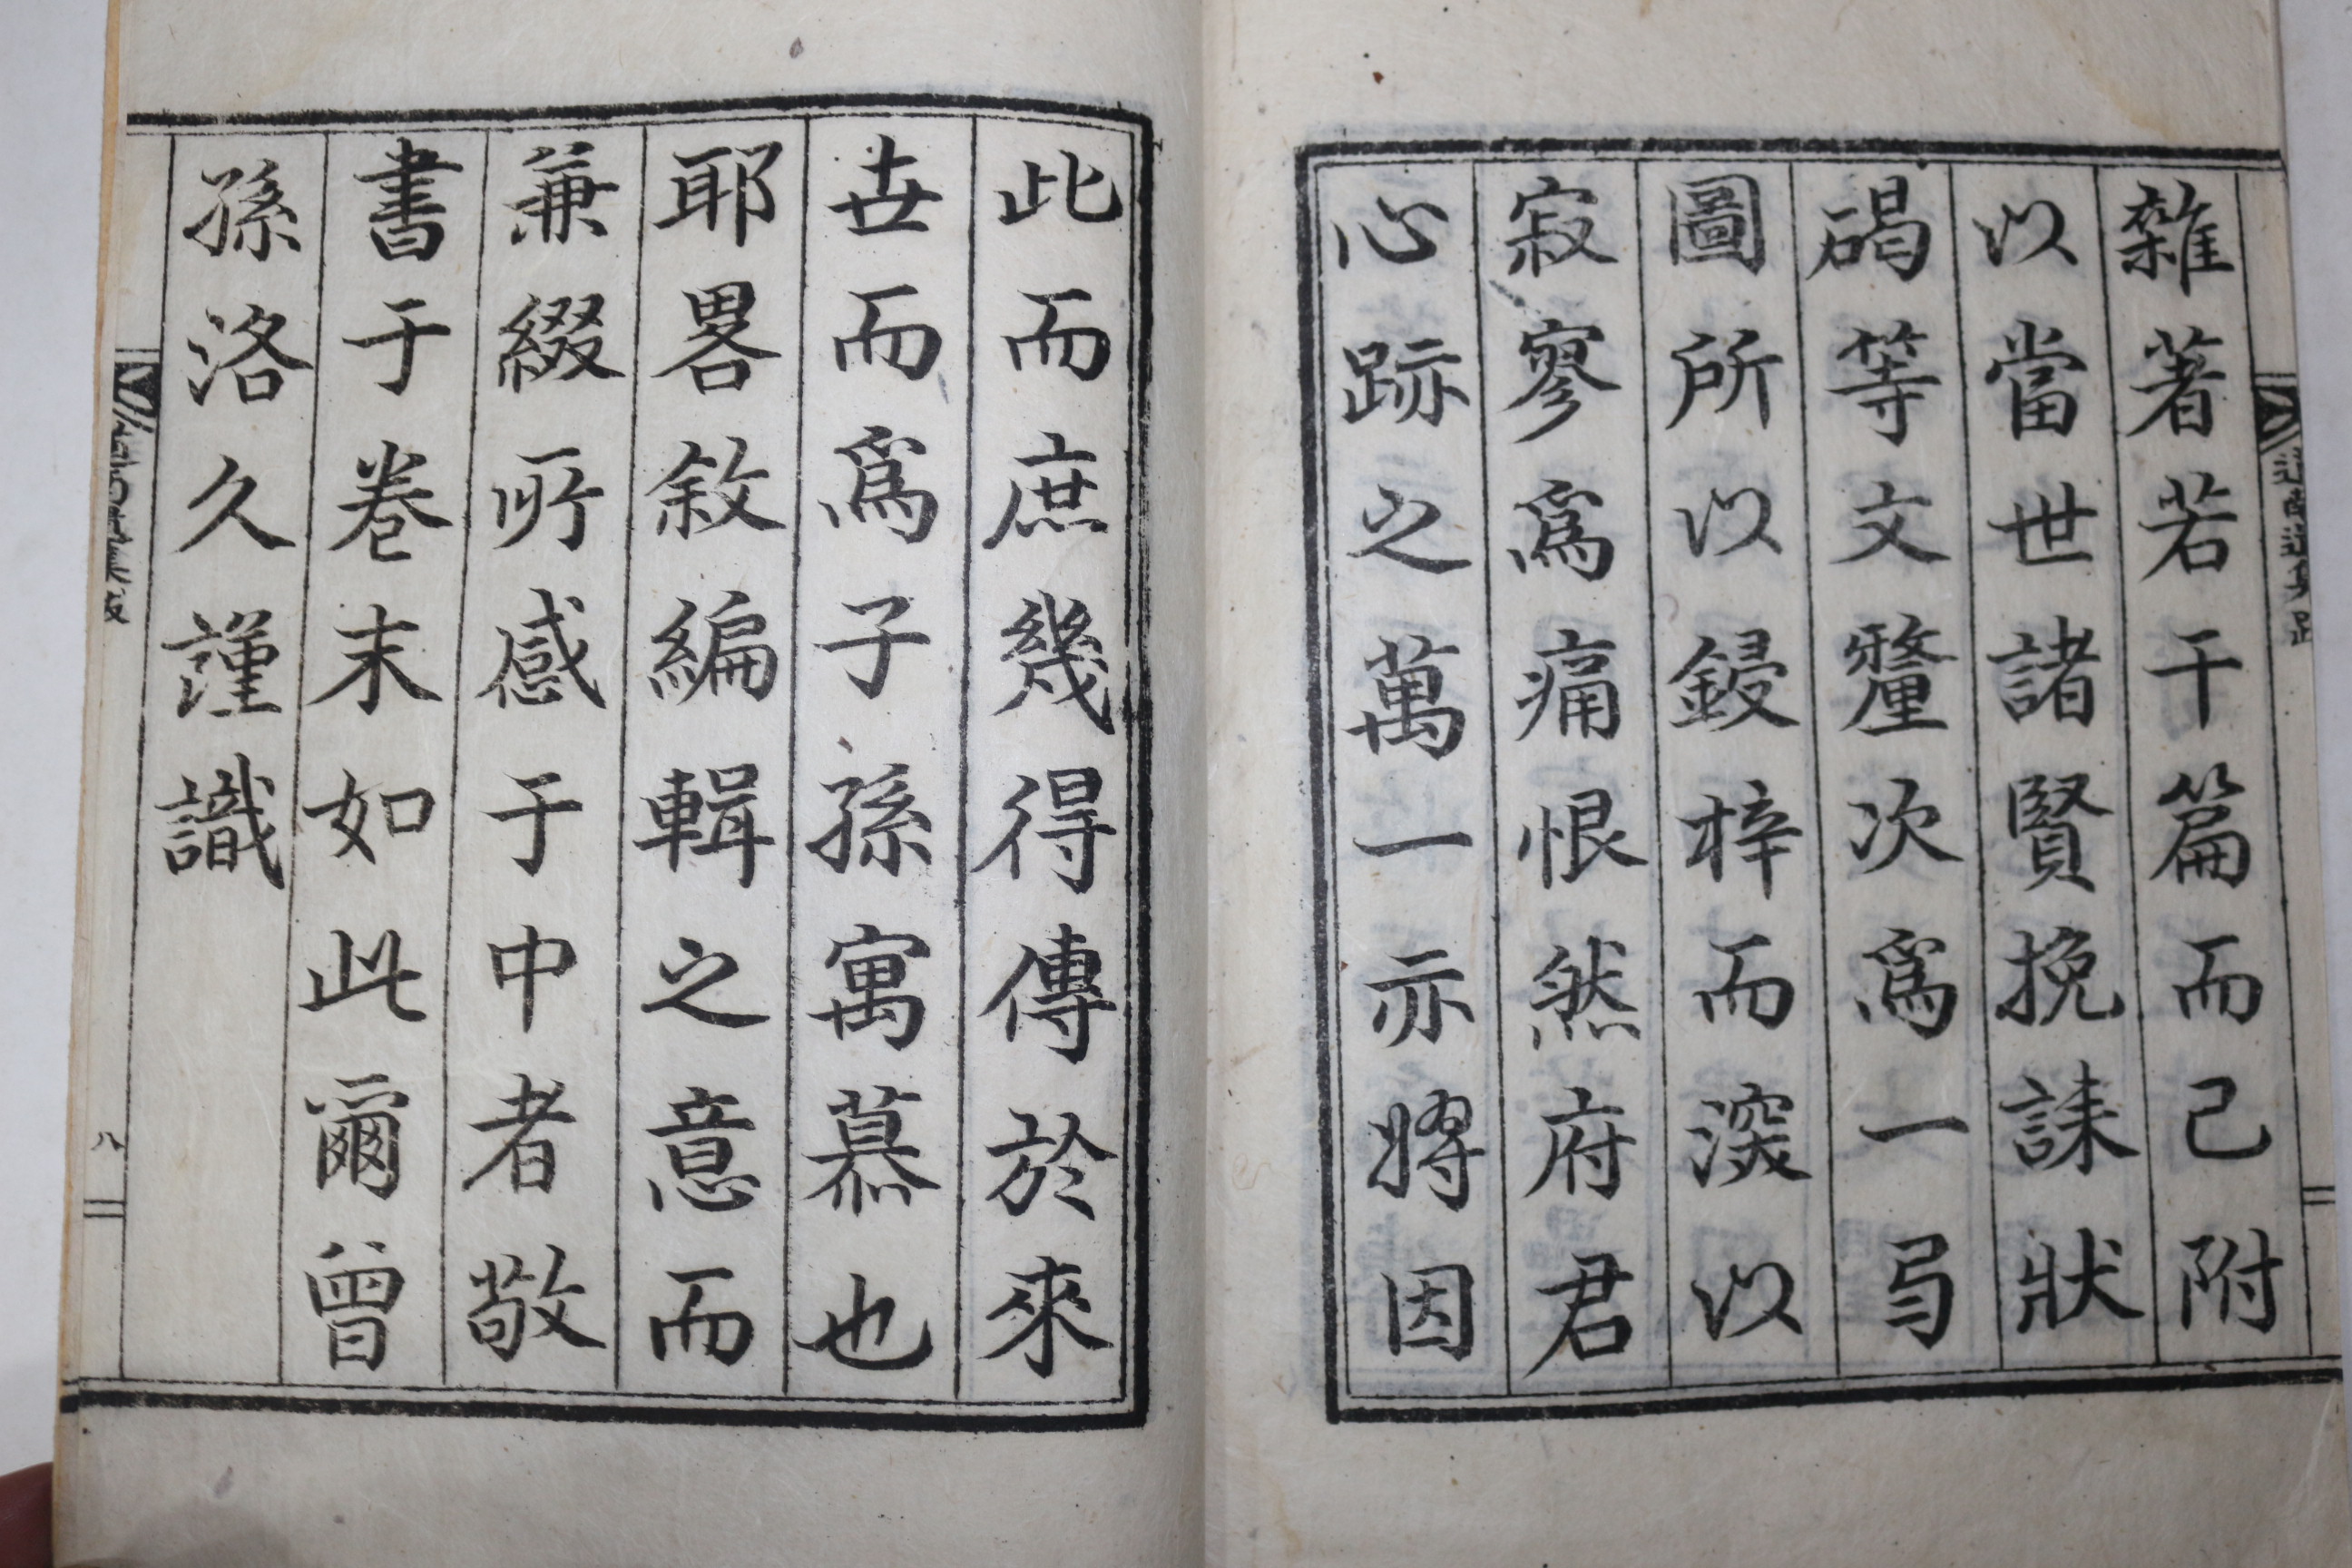 雜著若干篇而已附
以當世諸賢挽誄狀
碣等文釐次爲一弓
圖所以鋟梓而深以
寂寥爲痛恨然府君
心跡之萬一亦將因
此而庶幾得傳於來
世而爲子孫寓慕也
耶畧敘編輯之意而
兼綴所感于中者敬
書于卷末如此爾曾
孫洛久謹識
八